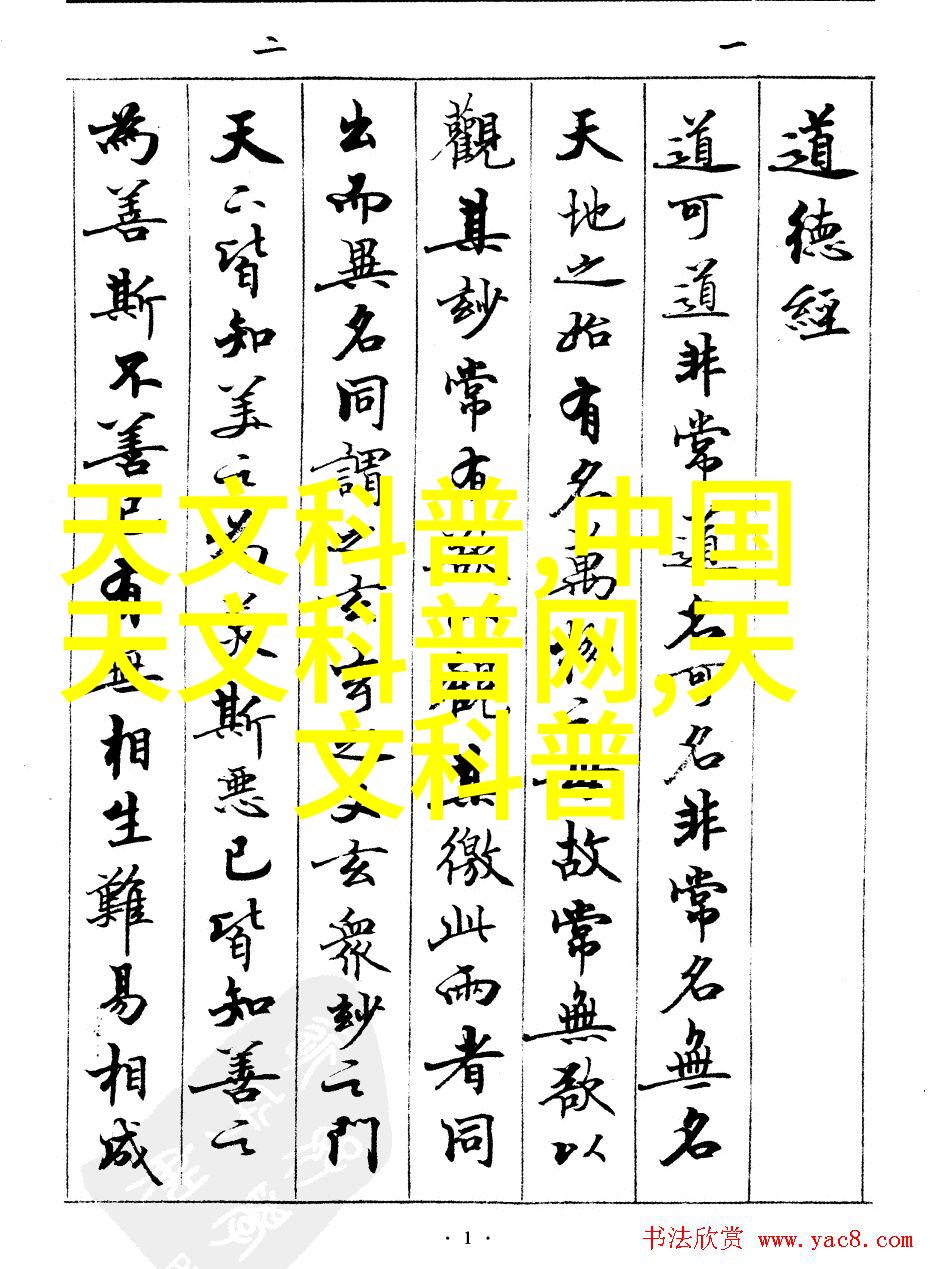 一
二
道徳經
道可道非常道名可名非常名無名
天地之始有名萬物之母故常無欲以
觀其玅常有欲以觀其徼此兩者同
出而異名同謂之玄玄之又玄衆玅之門
天下皆知美之為美斯惡已皆知善之
為善斯不善已有無相生難易相成
天文科普,中国
天文科普网,天
文科普
· 1 ·
书法欣赏 www.yac8.com